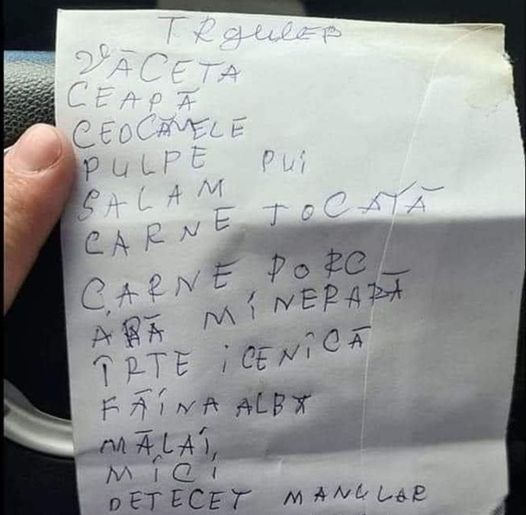 TRguLEP
2 VĂCETA
CEAPĂ
CEOCĂNELE
PULPE PUi
SALAM
CARNE TOCATĂ
CARNE PORC
APĂ MÍNERARĂ
ÎRTE iCENiCĂ
FĂÍNA ALBX
MĂLAÍ,
MÍCÍ
DETECET MANULAR